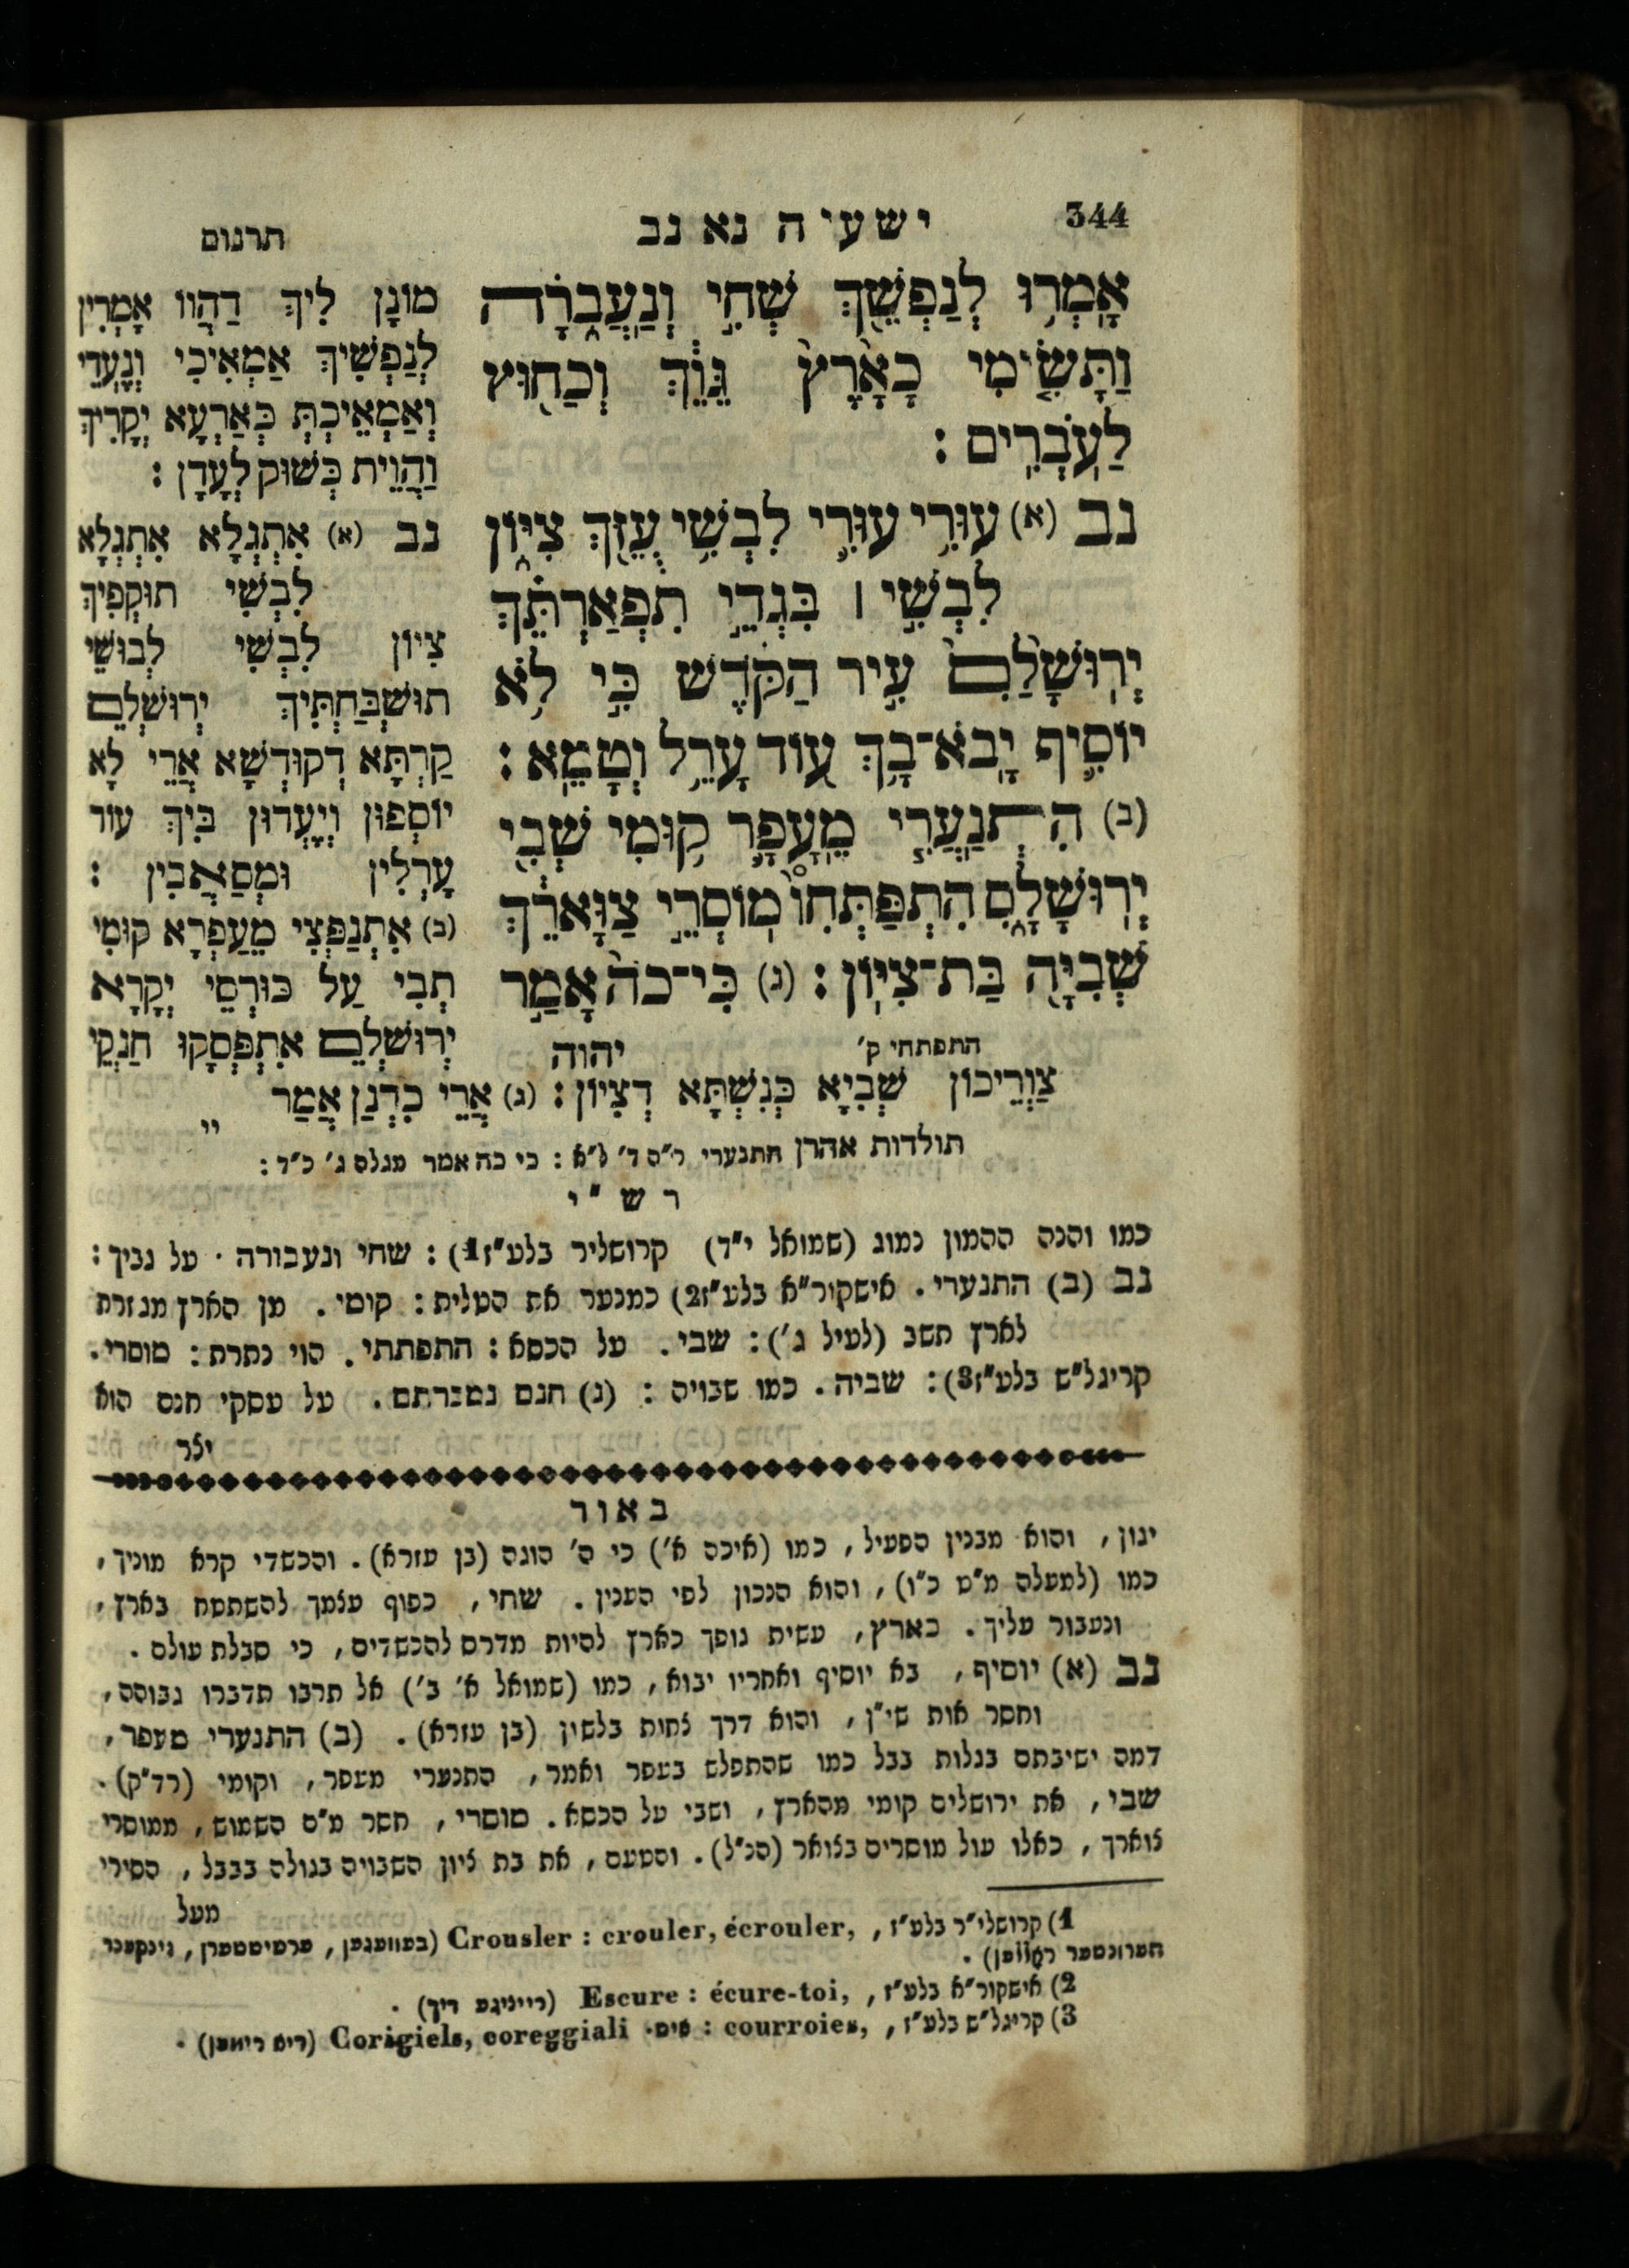 344
ישעיה נא נב
תרגום
אָמְר֥וּ לְנַפְשֵׁ֖ךְ שְׁחִ֣י וְנַעֲבֹ֑רָה
וַתָּשִׂ֤ימִי כָאָ֙רֶץ֙ גֵּוֵ֔ךְ וְכַח֖וּץ
לַעֹבְרִֽים :
נב (א) עוּרִ֥י עוּרִ֛י לִבְשִׁ֥י עֻזֵּ֖ךְ צִיּ֑וֹן
לִבְשִׁ֣י ׀ בִּגְדֵ֣י תִפְאַרְתֵּ֗ךְ
יְרֽוּשָׁלִַ֙ם֙ עִ֣יר הַקֹּ֔דֶשׁ כִּ֣י לֹ֥א
יוֹסִ֛יף יָבֹא־בָ֥ךְ ע֖וֹד עָרֵ֥ל וְטָמֵֽא :
(ב) הִתְנַעֲרִ֧י מֵעָפָ֛ר ק֥וּמִי שְּׁבִ֖י
יְרֽוּשָׁלִָ֑ם הִֽתְפַּתְּחוּ֙ מוֹסְרֵ֣י צַוָּארֵ֔ךְ
שְׁבִיָּ֖ה בַּת־צִיּֽוֹן : (ג) כִּי־כֹה֙ אָמַ֣ר
התפתחי ק׳
יהוה
מוֹנָן לִיךְ דַהֲווֹ אָמְרִין
לְנַפְשִׁיךְ אַמְאִיכִי וְנָעֲדֵי
וְאַמְאֵיכְתְּ כְּאַרְעָא יְקָרִיךְ
וַהֲוֵית כְּשׁוּק לְעָדָן :
נב (א) אִתְגְלָא אִתְגְלָא
לִבְשִׁי תּוּקְפִיךְ
צִיוֹן לִבְשִׁי לְבוּשֵׁי
תּוּשְׁבַּחְתִּיךְ יְרוּשְׁלֵם
קַרְתָּא דְקוּדְשָׁא אֲרֵי לָא
יוֹסְפוּן וְיֶעְדוּן בִּיךְ עוֹד
עָרְלִין וּמְסַאֲבִין :
(ב) אִתְנַפְּצִי מֵעַפְרָא קוּמִי
תְבִי עַל כּוּרְסֵי יְקָרָא
יְרוּשְׁלֵם אִתְפְּסָקוּ חַנְקֵי
צַוְרֵיכוֹן שְׁבִיָא כְּנִשְׁתָּא דְצִיוֹן : (ג) אֲרֵי כִדְנַן אֲמַר
יי
תולדות אהרן התנערי ר״ס ד׳ ל״א : כי כה אמר מגלס ג׳ כ״ד :
רש״י
כמו והנה ההמון נמוג (שמואל י״ד) קרושליר בלע״ז1) : שחי ונעבורה · על גביך :
נב (ב) התנערי . אישקור״א בלע״ז2) כמנער את הטלית : קומי . מן הארץ מגזרת
לארץ תשב (לעיל ג׳) : שבי . על הכסא : התפתחי . הוי נתרת : מוסרי .
קריגל״ש בלע״ז3) : שביה . כמו שבויה : (ג) חנם נמכרתם . על עסקי חנם הוא
יצר
באור
יגון , והוא מבנין הפעיל , כמו (איכה א׳) כי ה׳ הוגה (בן עזרא) . והכשדי קרא מוניך ,
כמו (למעלה מ״ט כ״ו) , והוא הנכון לפי הענין . שחי , כפוף עצמך להשתטח בארץ ,
ונעבור עליך . כארץ , עשית גופך כארץ להיות מדרס להכשדים , כי סבלת עולם .
נב (א) יוסיף , בא יוסיף ואחריו יבוא , כמו (שמואל א׳ ב׳) אל תרבו תדברו גבוהה ,
וחסר אות שי״ן , והוא דרך צחות בלשון (בן עזרא) . (ב) התנערי מעפר ,
דמה ישיבתם בגלות בבל כמו שהתפלש בעפר ואמר , התנערי מעפר , וקומי (רד״ק) .
שבי , את ירושלים קומי מהארץ , ושבי על הכסא . מוסרי , חסר מ״ם השמוש , ממוסרי
צוארך , כאלו עול מוסרים בצואר (הנ״ל) . והטעם , את בת ציון השבויה בגולה בבבל , הסירי
מעל
1) קרושלי״ר בלע״ז , Crousler : crouler, écrouler, (בעוועגען , ערשיטטערן , זינקענד
הערונטער ראָללען) .
2) אישקור״א בלע״ז , Escure : écure-toi, (רייניגע דיך) .
3) קריגל״ש בלע״ז , Corigiels, coreggiali איט· : courroies, (דיא ריאמן) .